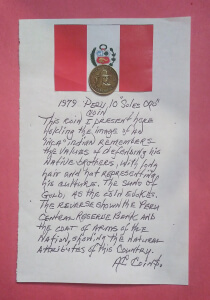 1979 PERU, 10 "Soles ORO"
COIN
The coin I present here
the image of an
"INCA" Indian remembers
the values of defending his
Native brothers, with long
hair and hat representing
his culture. The suns of
Gold, as the coin evokes.
The reverse shown the Peru
Central Reserve Bank and
the coat of Arms of the
Nation, showing the natural
Attributes of this Country.